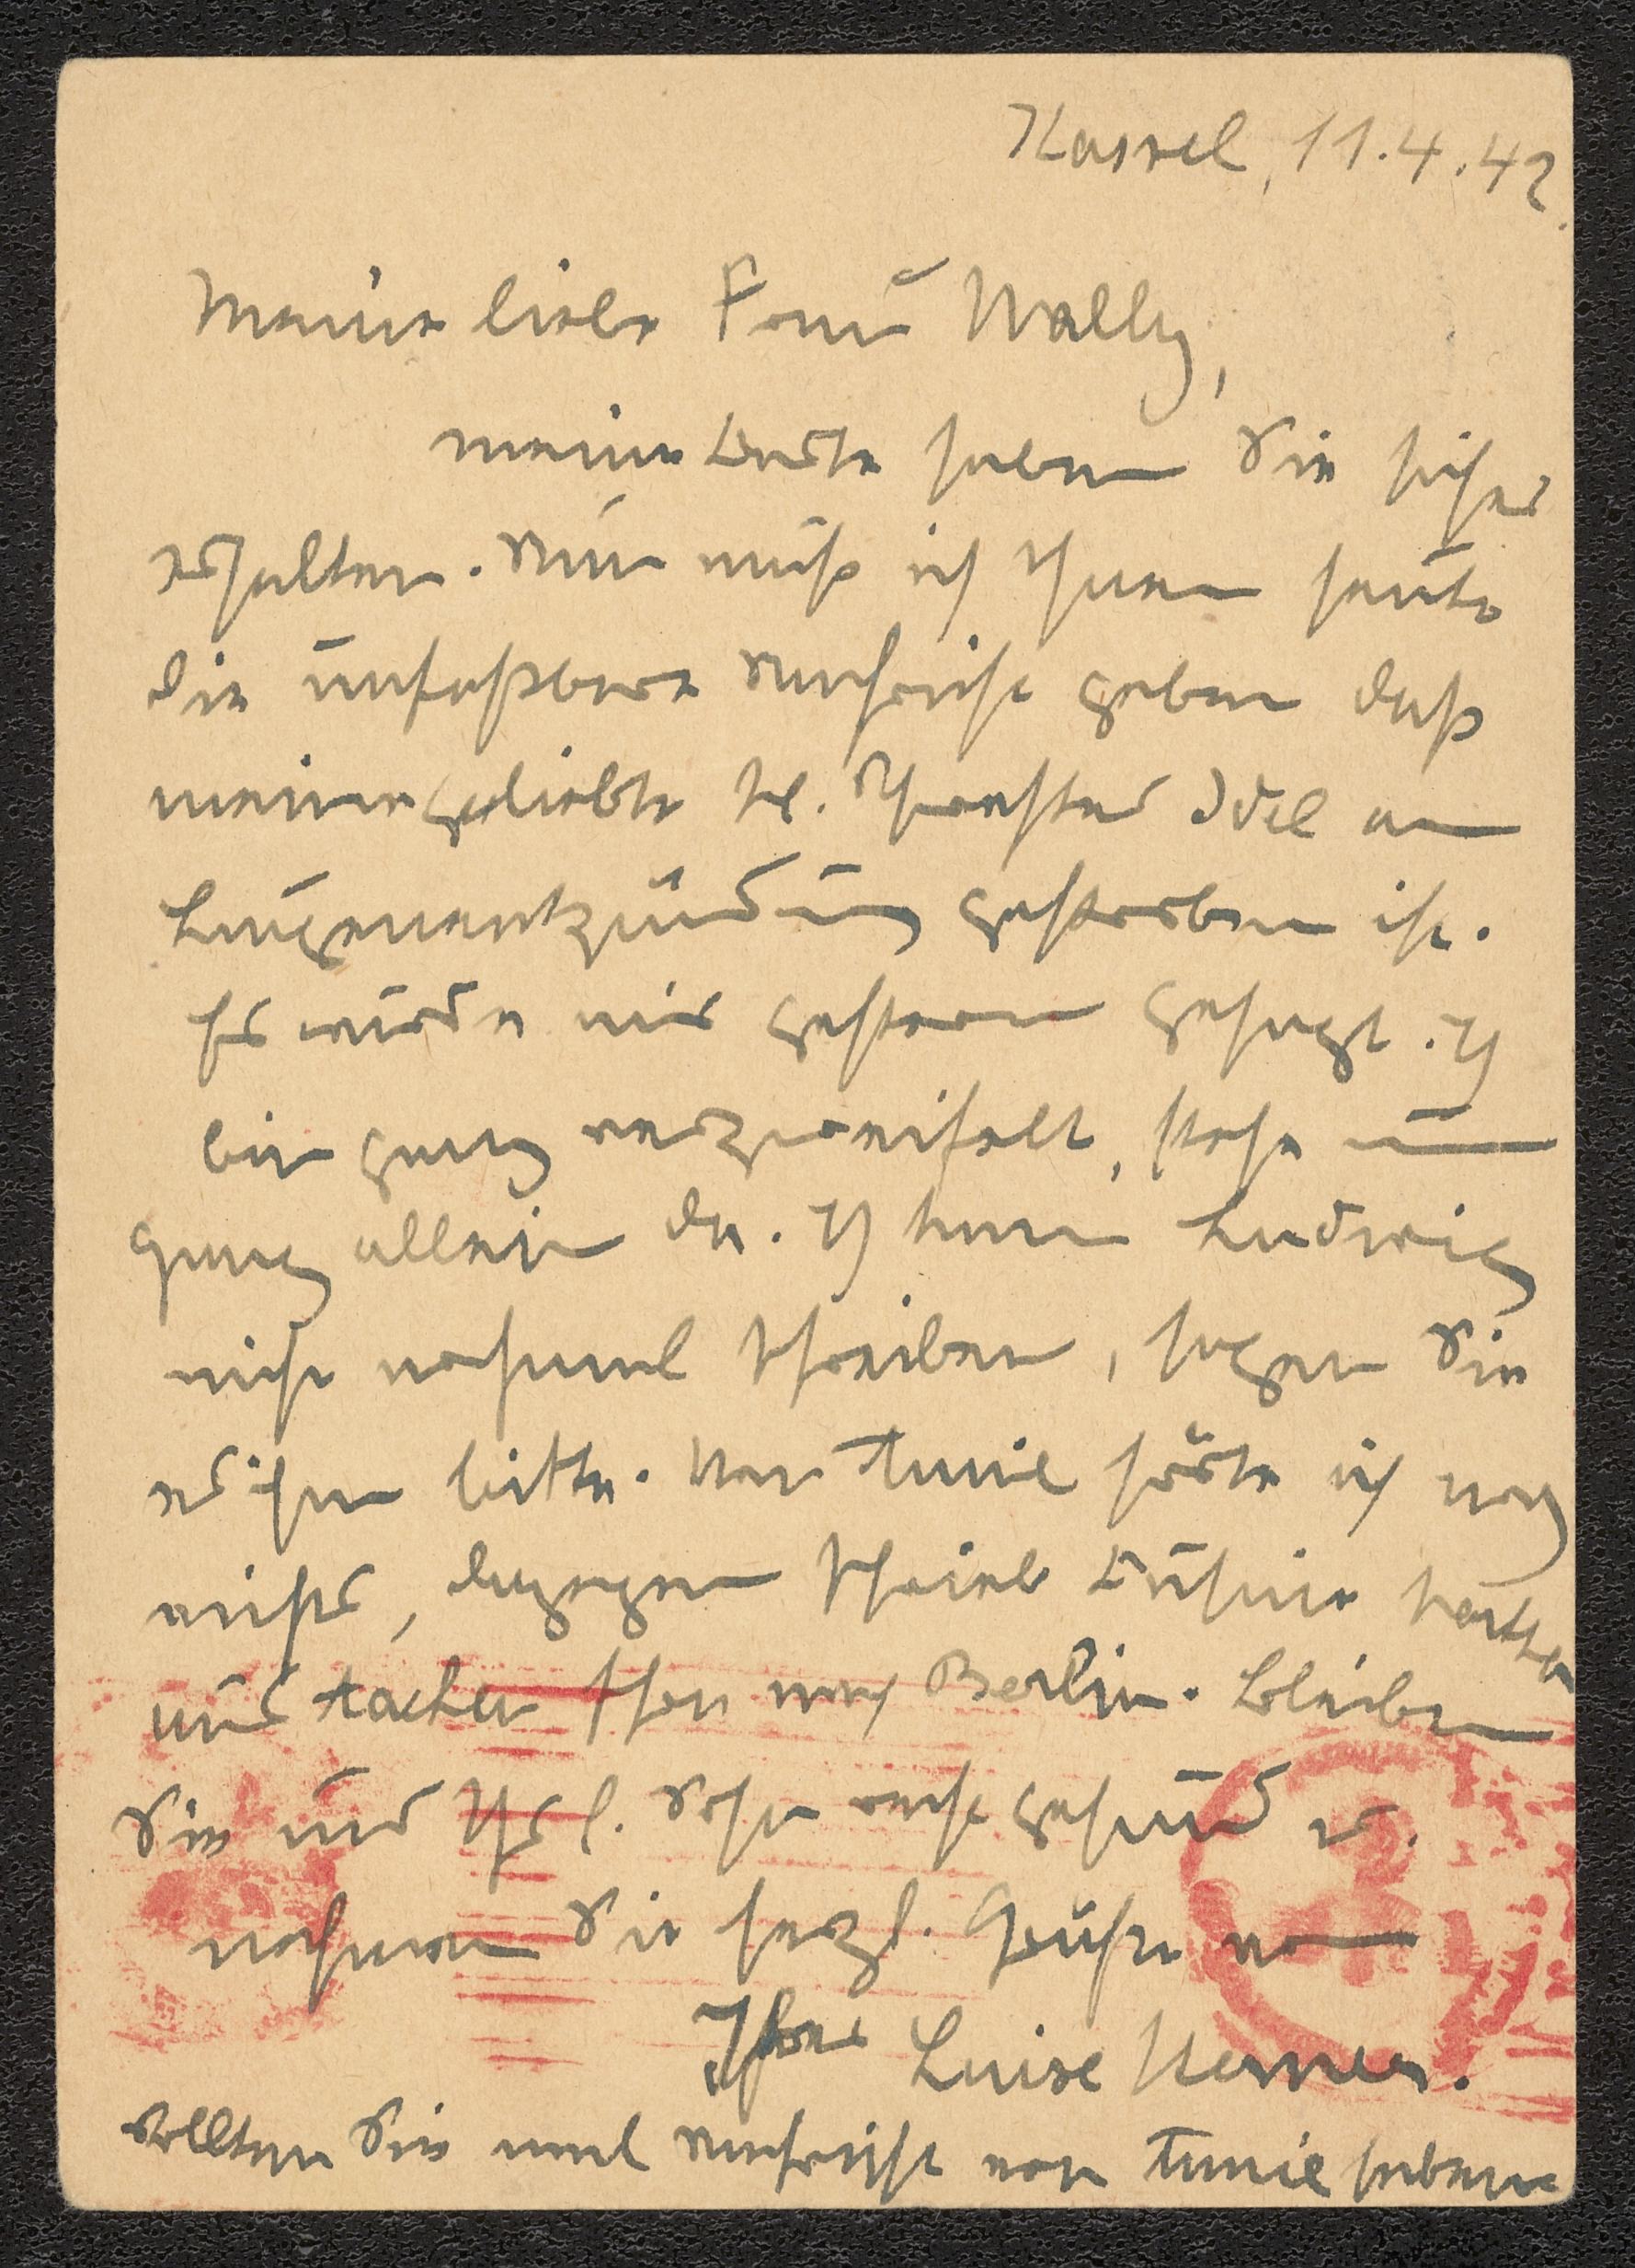 Kassel, 11.4.42.
Meine liebe Frau Wally,
meine Karte haben Sie sicher
erhalten. Nun muß ich Ihnen heute
die unfaßbare Nachricht geben daß
meine geliebte Schwester Idel an
Lungenentzündung gestorben ist.
Es wurde mir gestern gesagt. Ich
bin ganz verzweifelt, stehe nun
ganz allein da. Ich kann Ludwig
nicht nochmal schreiben, sagen Sie
es ihm bitte. Von hörte ich noch
nichts, dagegen schrieb
und schon nach Berlin. Bleiben
Sie und Ihr l. Sohn recht gesund u.
nehmen Sie herzl. Grüße von
Ihrer Luise
Sollten Sie mal Nachricht von haben